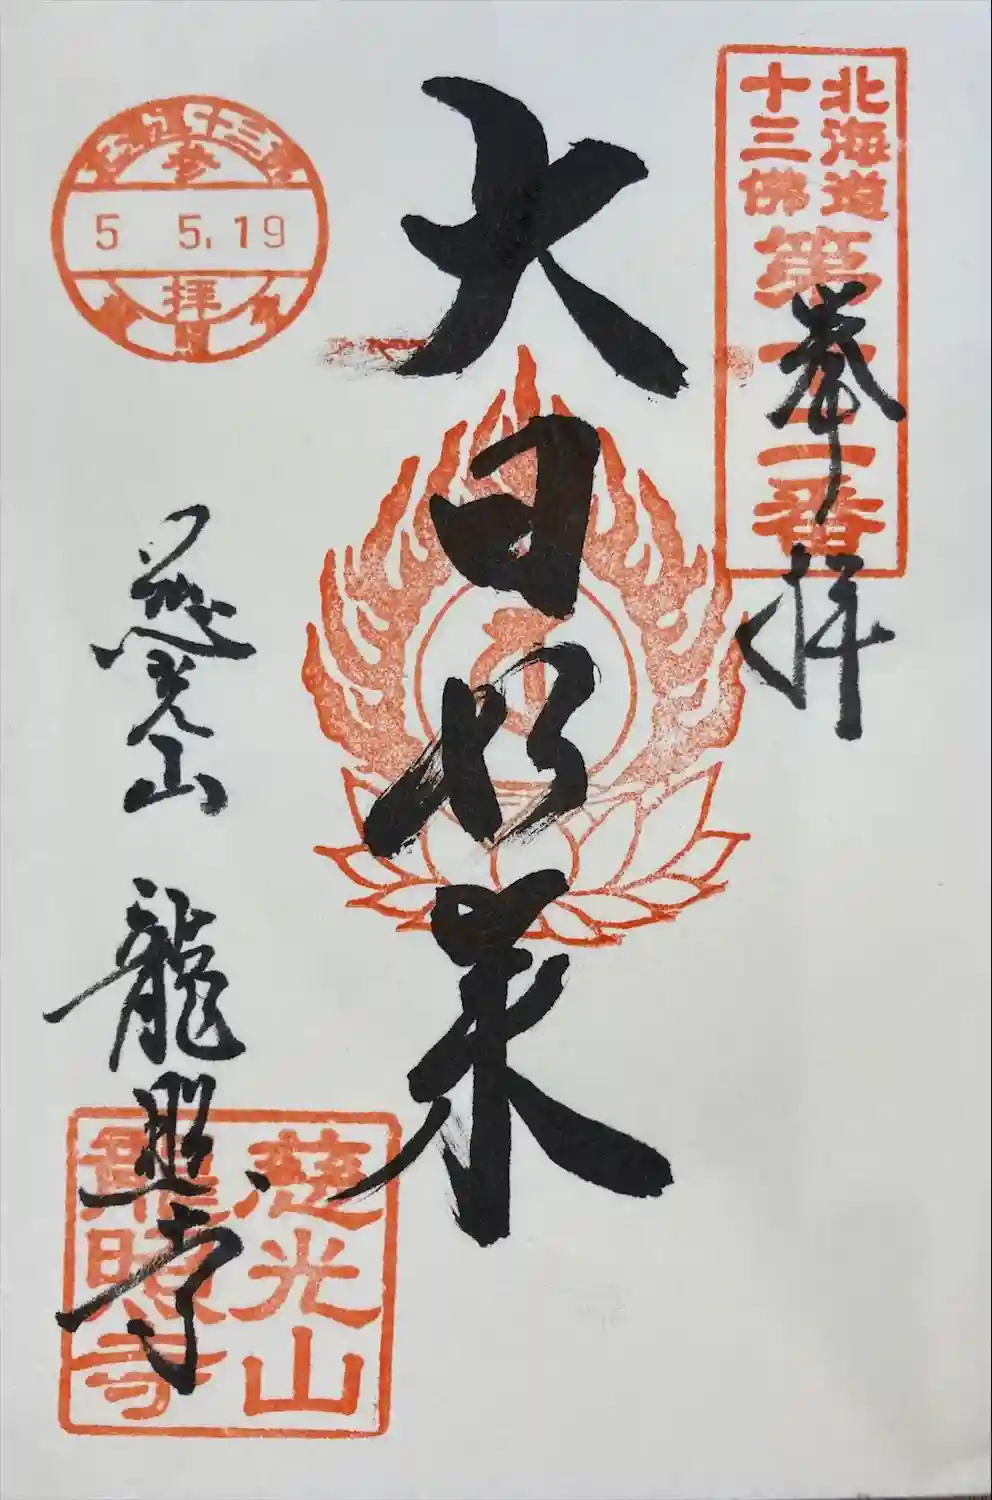 北海道
十三佛
第十二番
奉拝
大日如来
慈光山 龍照寺
参
5 5.19
拝
慈光山
龍照寺